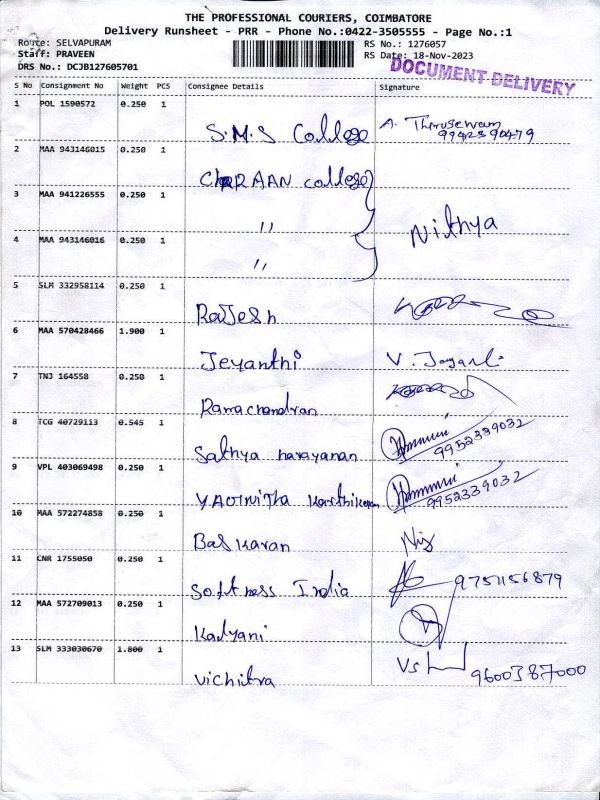 THE PROFESSIONAL COURIERS, COIMBATORE
Delivery Runsheet - PRR - Phone No.:0422-3505555 - Page No.:1
Route: SELVAPURAM
Staff: PRAVEEN
DRS No.: DCJB127605701
RS No.: 1276057
RS Date: 18-Nov-2023
DOCUMENT DELIVERY
S No Consignment No Weight PCS Consignee Details Signature
1 POL 1590572 0.250 1
S.M.S College A.
2 MAA 943146015 0.250 1
College
3 MAA 941226555 0.250 1
" Nithya
4 MAA 943146016 0.250 1
"
5 SLM 332958114 0.250 1
Rajesh
6 MAA 570428466 1.900 1
Jeyanthi V.
7 TNJ 164558 0.250 1
Ramachandran
8 TCG 40729113 0.545 1
Sathya narayanan 9952339032
9 VPL 403069498 0.250 1
9952339032
10 MAA 572274858 0.250 1
Baskaran
11 CNR 1755050 0.250 1
Softness India 9751156879
12 MAA 572709013 0.250 1
Kalyani
13 SLM 333030670 1.800 1
Vichitra 9600387000